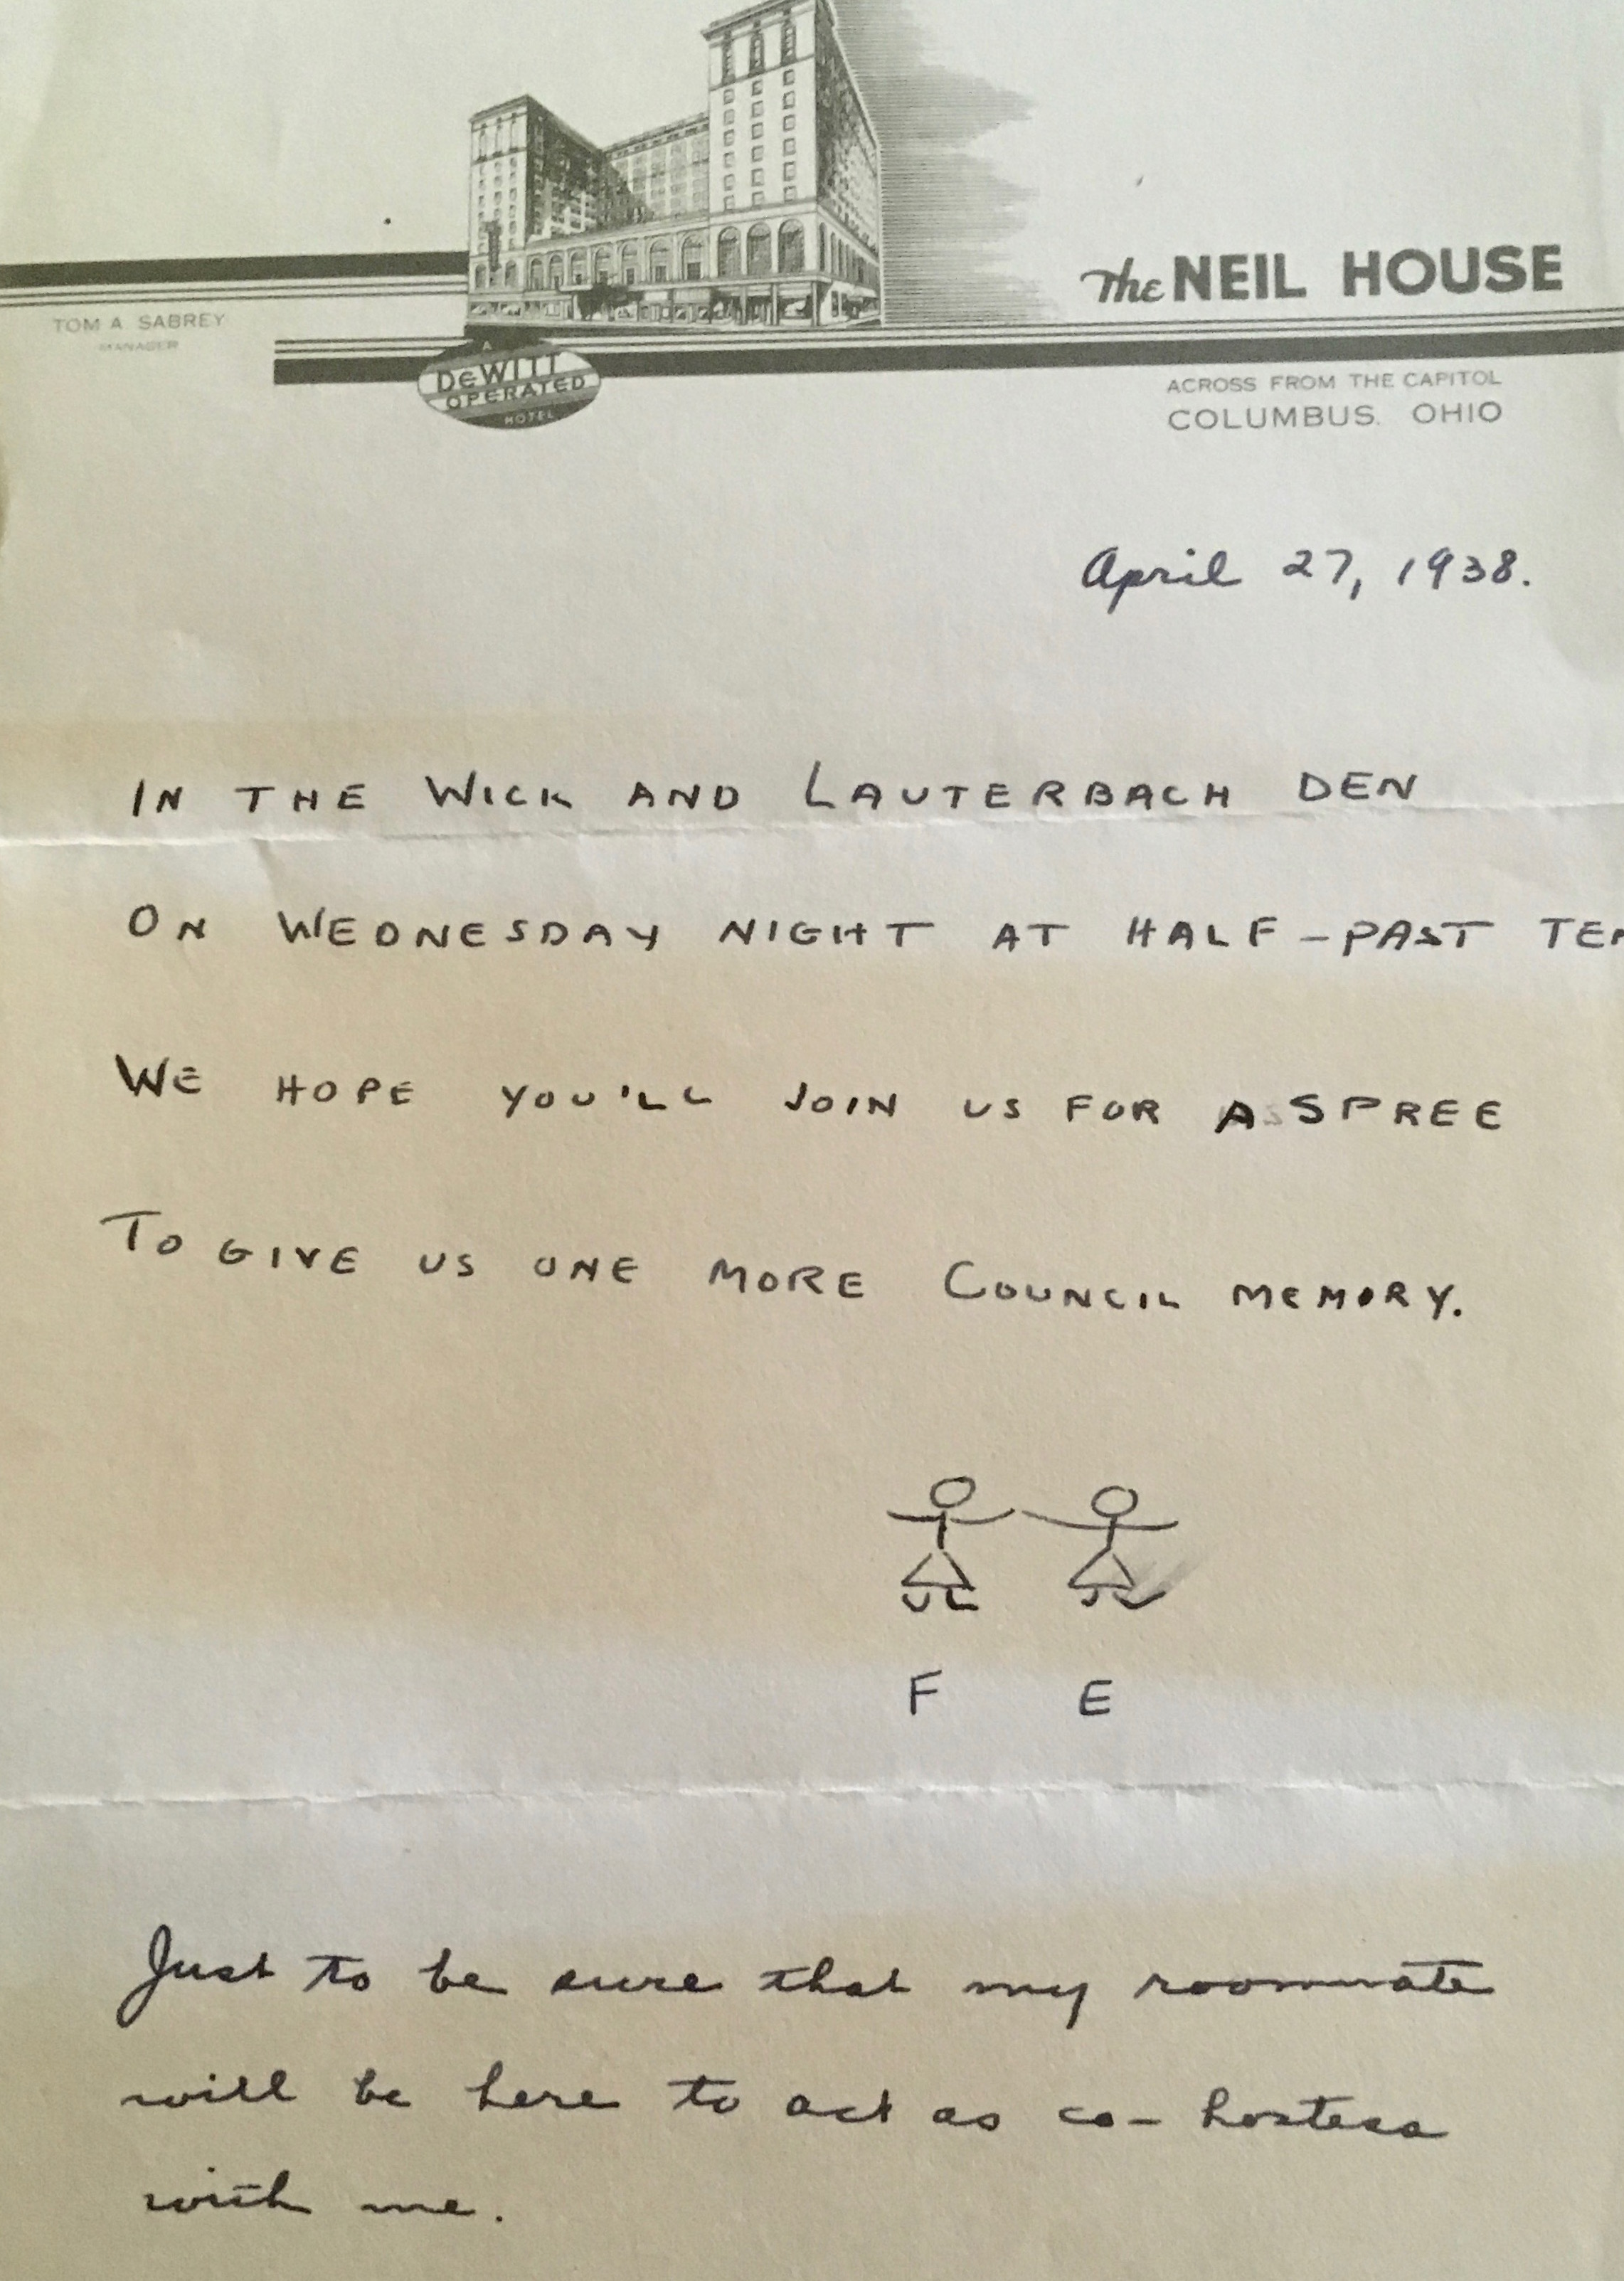 The NEIL HOUSE
TOM A. SABREY
MANAGER
A
DeWITT
OPERATED
HOTEL
ACROSS FROM THE CAPITOL
COLUMBUS, OHIO
April 27, 1938.
IN THE WICK AND LAUTERBACH DEN
ON WEDNESDAY NIGHT AT HALF-PAST TEN
WE HOPE YOU'LL JOIN US FOR A SPREE
TO GIVE US ONE MORE COUNCIL MEMORY.
F E
Just to be sure that my roommate
will be here to act as co-hostess
with me.